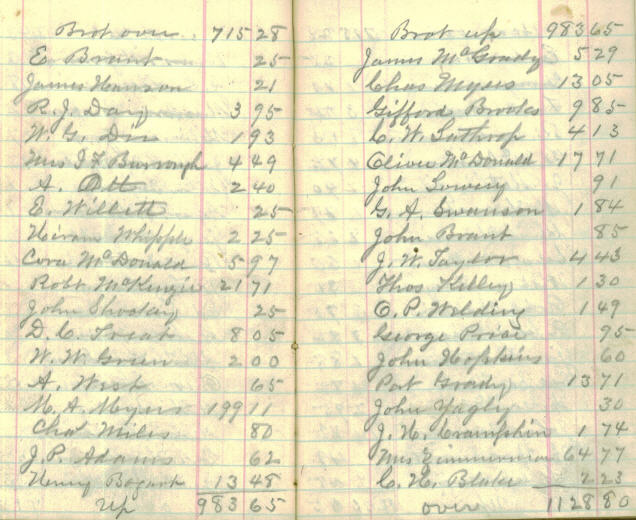 Brot over 715 28
E Brant 25
James Hanson 21
R. J. Day 3 95
W. G. Dir 1 93
Mrs J F Burrough 4 49
A. Ott 2 40
E. Willett 25
Hiram Whipple 2 25
Cora McDonald 5 97
Robt McKenzie 21 71
John Shookey 25
D. C. Treat 8 05
W. W. Green 2 00
A. West 65
M. A. Myers 199 11
Chas Miles 80
J. P. Adams 62
Henry Bogart 13 48
Up 983 65
Brot up 983 65
James McGrady 5 29
Chas Myers 13 05
Gifford Brooks 9 85
C. W. Lathrop 4 13
Oliver McDonald 17 71
John Lowery 91
G. A. Swanson 1 84
John Brant 85
J. W. Taylor 4 43
Thos Kelley 1 30
C. P. Welding 1 49
George Price 95
John Hopkins 60
Pat Grady 13 71
John Yagly 30
J. H. Crampkin 1 74
Mrs Zimmerman 64 77
C. H. Blake 2 23
over 1128 80